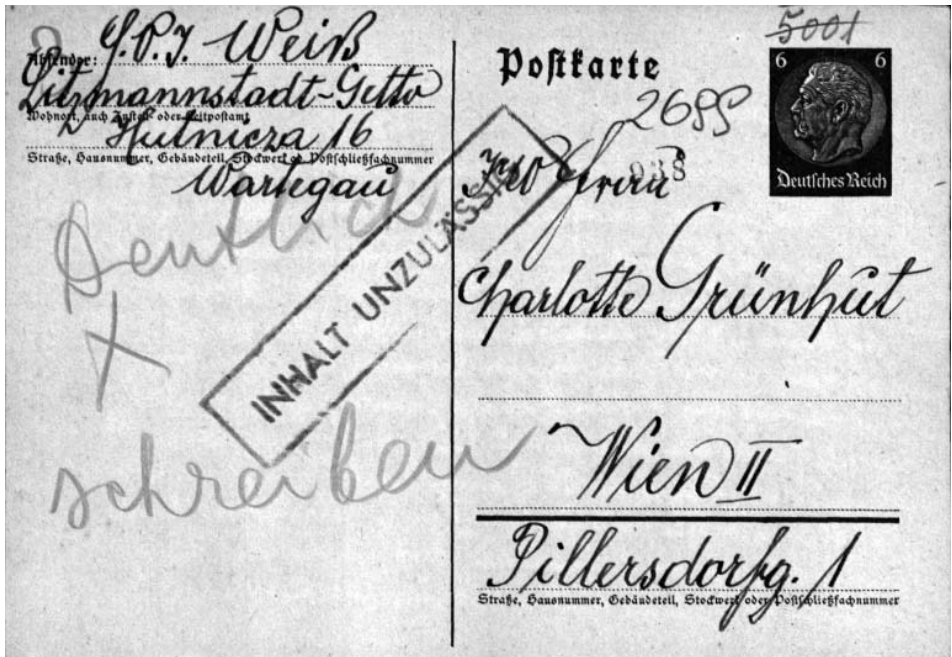 Absender: S.P.J. Weiß
Litzmannstadt-Getto
Wohnort, auch Zustell- oder Leitpostamt
Hutnicza 16
Straße, Hausnummer, Gebäudeteil, Stockwerk od. Postschließfachnummer
Wartegau
Deutlich
schreiben
INHALT UNZULÄSSIG
5001
Postkarte
6 6
Deutsches Reich
2699
938
Frau
Charlotte Grünhut
Wien II
Pillersdorfg. 1
Straße, Hausnummer, Gebäudeteil, Stockwerk oder Postschließfachnummer